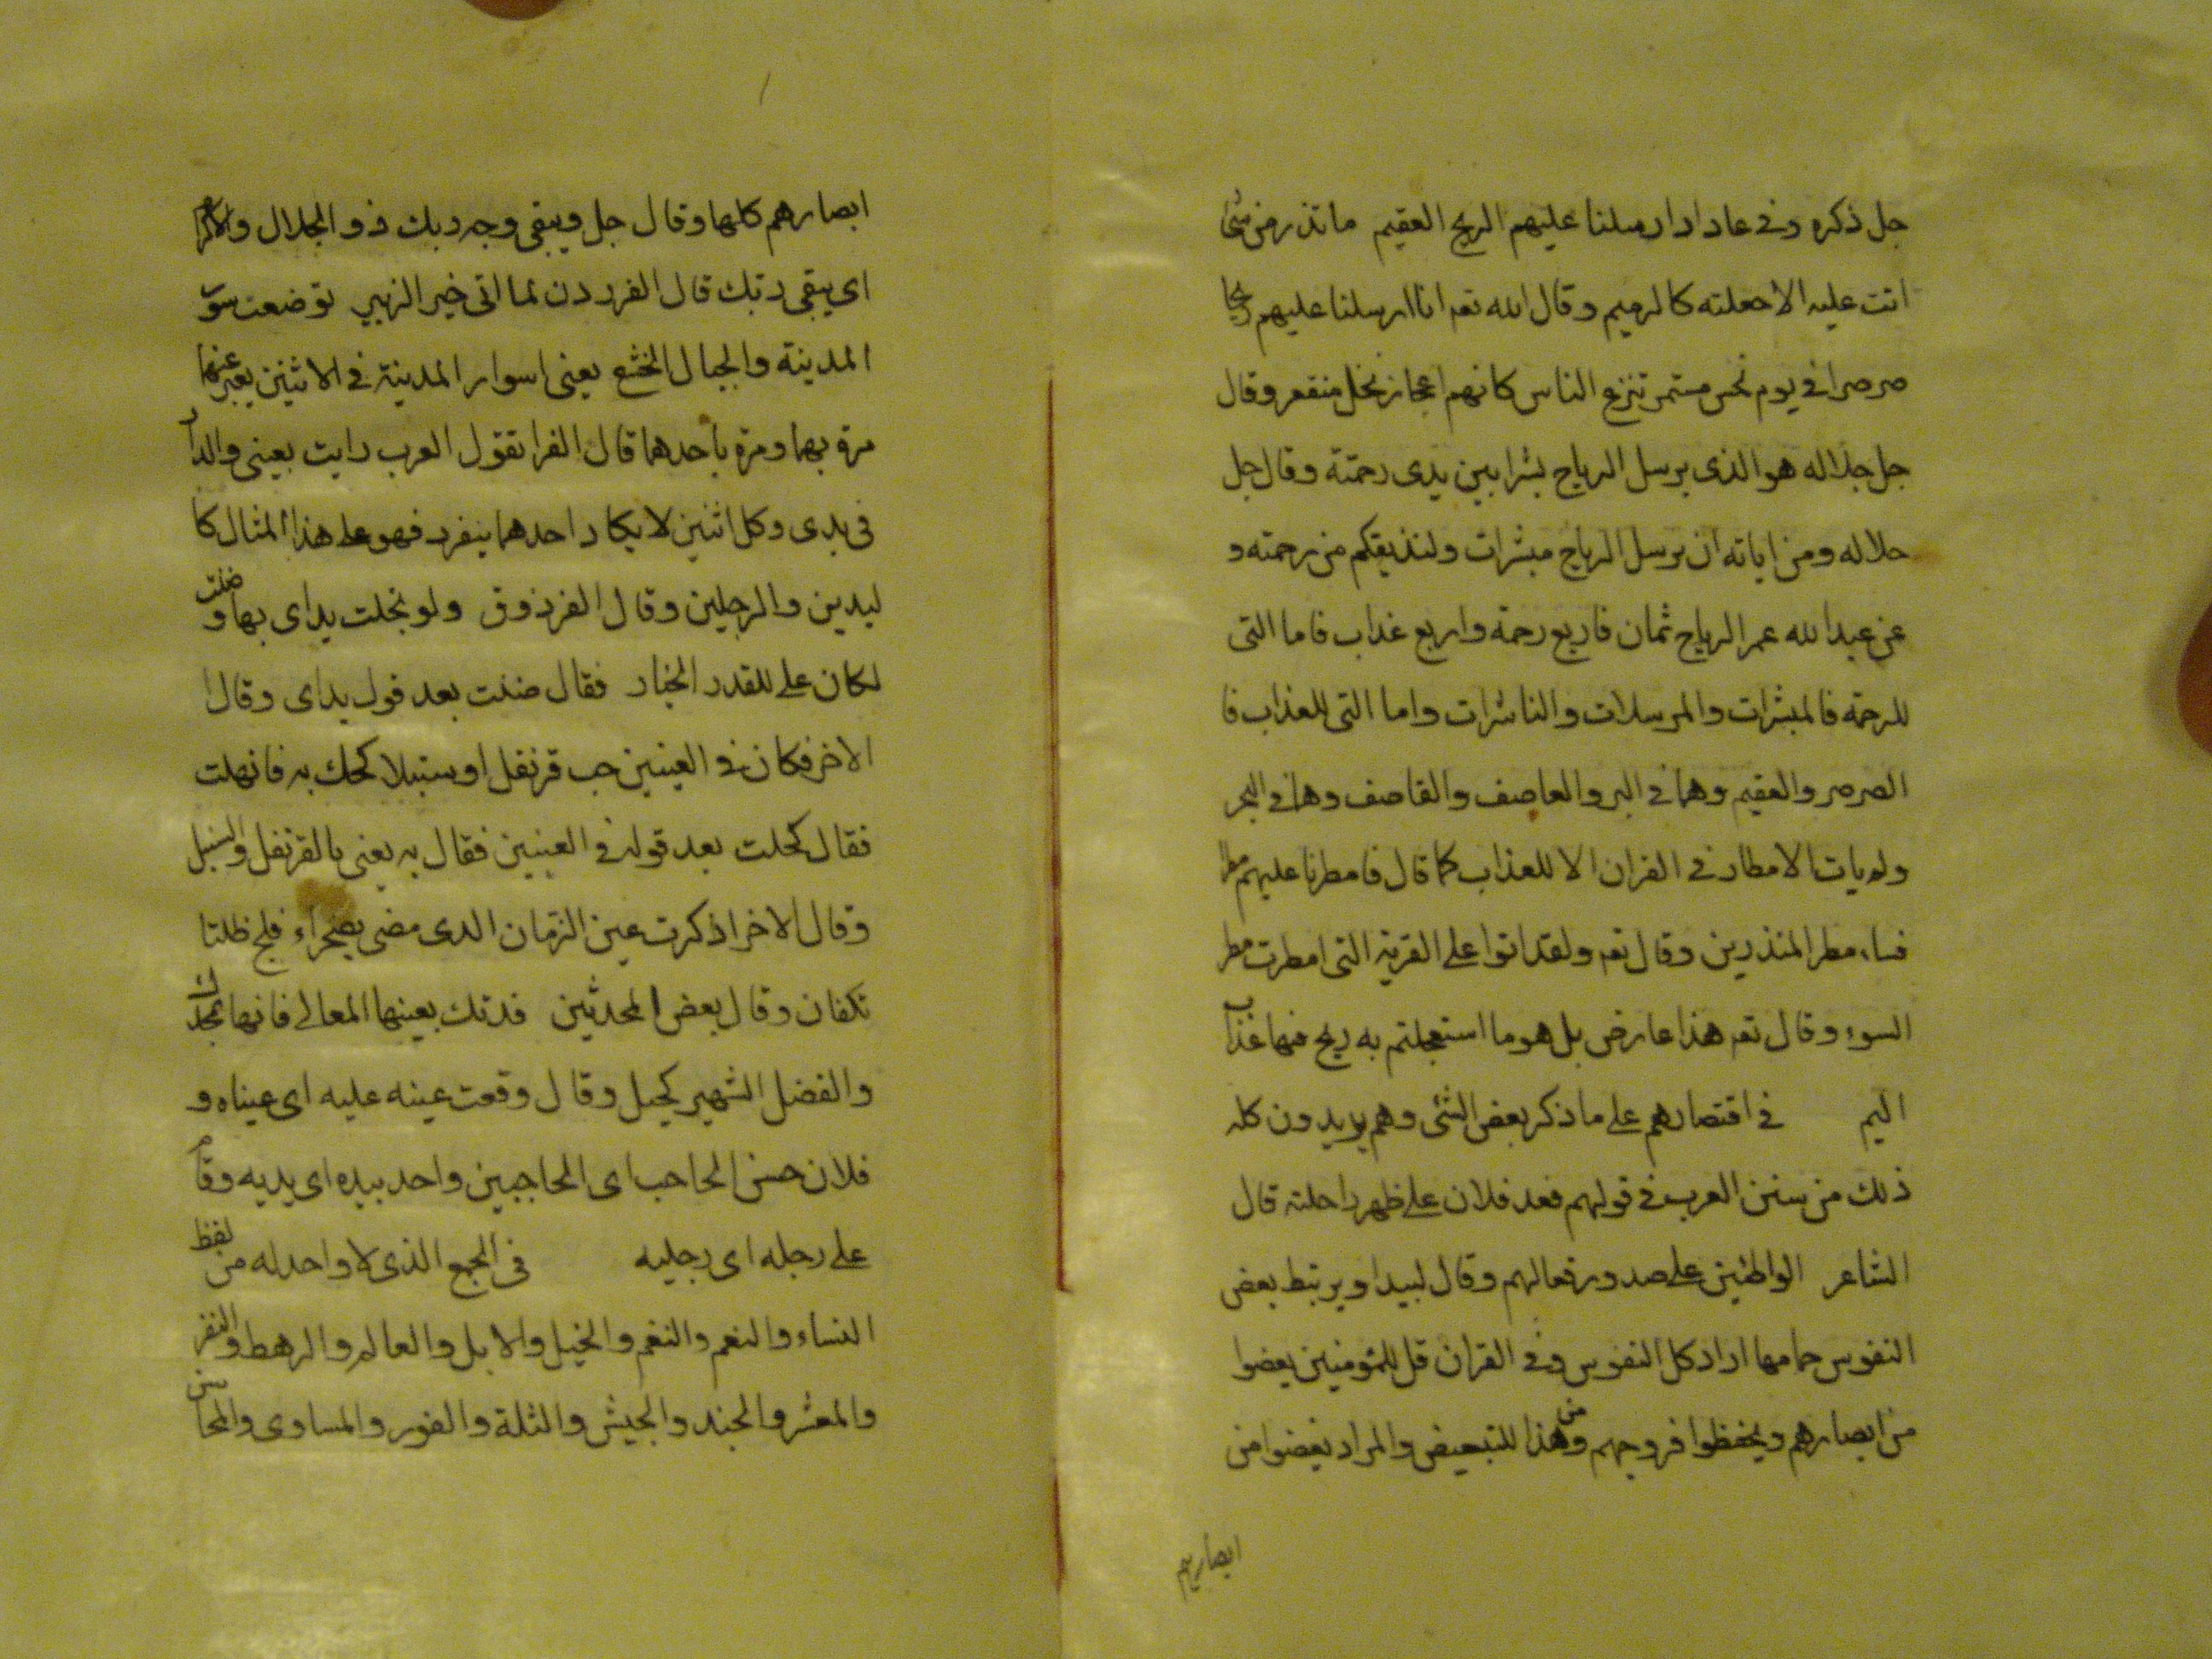 جل ذكره وفى عاد اد ارسلنا عليهم الريح العقيم ماتذر من شئ
اتت عليه الا جعلته كالرميم وقال الله تعه انا ارسلنا عليهم ريحا
صرصرا فى يوم نحس مستمر تنزع الناس كانهم اعجاز نخل منقعر وقال
جل جلاله هو الذى يرسل الرياح بشرا بين يدى رحمته وقال جل
جلاله ومن اياته ان يرسل الرياح مبشرات ولنذيقكم من رحمته و
عن عبد الله عمر الرياح ثمان فاربع رحمة واربع عذاب فاما التى
للرحمة فالمبشرات والمرسلات والناشرات واما التى للعذاب فا
الصرصر والعقيم وهما فى البر والعاصف والقاصف وهما فى البحر
ولم يات الامطار فى القران الا للعذاب كما قال فامطرنا عليهم مطرا
فساء مطر المنذرين وقال تعه ولقد اتوا على القرية التى امطرت مطر
السوء وقال تعه هذا عارض بل هو ما استعجلتم به ريح فيها عذاب
اليم فى اقتصارهم على ما ذكر بعض الشئ وهم يريدون كله
ذلك من سنن العرب فى قولهم قعد فلان على ظهر راحلته قال
الشاعر الواطئين على صدور نعالهم وقال لبيد او يرتبط بعض
النفوس حمامها اراد كل النفوس وفى القران قل للمؤمنين يغضوا
من ابصارهم ويحفظوا فروجهم ومن هذا للتبعيض والمراد يغضوا من
ابصارهم
ابصارهم كلها وقال جل ويبقى وجه ربك ذو الجلال والاكرام
اى يبقى ربك قال الفرردن لما اتى خبر الزبير توضعت سور
المدينة والجبال الخشع يعنى اسوار المدينة فى الاثنين يعبر عنهما
مرة بهما ومرة باحدهما قال الفرا تقول العرب رايت بعينى والدار
فى يدى وكل اثنين لا يكاد احدهما ينفرد فهو على هذا المثال كا
ليدين والرجلين وقال الفرزوق ولو بخلت يداى بها وضنت
لكان على للقدر الخيار فقال ضنت بعد قول يداى وقال ا
الاخر فكان فى العينين حب قرنفل او سنبلا كحلت به فانهلت
فقال كحلت بعد قوله فى العينين فقال به يعنى بالقرنفل والسنبل
وقال الاخر اذ كرت عين الزمان الدى مضى بصحراء فلج ظلتا
تكفان وقال بعض المحدثين فدتك بعينها المعالى فانها بمجدك
والفضل الشهير كحيل وقال وقعت عينه عليه اى عيناه و
فلان حسن الحاجب اى الحاجبين واحد بيده اى يديه وقام
على رجله اى رجليه فى الجمع الذى لا واحد له من لفظ
النساء والنعم والنغم والخيل والابل والعالم والرهط والنفر
والمعشر والجند والجيش والثلة والفور والمساوى والمحاسن